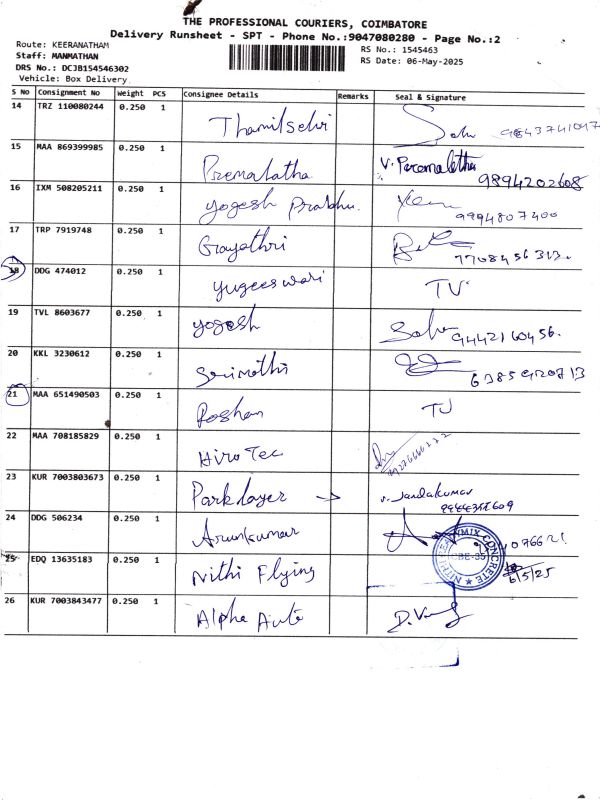 THE PROFESSIONAL COURIERS, COIMBATORE
Delivery Runsheet - SPT - Phone No.:9047080280 - Page No.:2
Route: KEERANATHAM
Staff: MANMATHAN
DRS No.: DCJB154546302
Vehicle: Box Delivery
RS No.: 1545463
RS Date: 06-May-2025
S No Consignment No Weight PCS Consignee Details Remarks Seal & Signature
14 TRZ 110080244 0.250 1 Thamilselvi 9843741047
15 MAA 869399985 0.250 1 Premalatha V. Premalatha 9894202608
16 IXM 508205211 0.250 1 yogesh Prabhu. 9994807400
17 TRP 7919748 0.250 1 Gayathri 7708456313.
18 DDG 474012 0.250 1 yugeeswari TV
19 TVL 8603677 0.250 1 yogesh 9442160456.
20 KKL 3230612 0.250 1 Srimathi 6385920713
21 MAA 651490503 0.250 1 Roshan TV
22 MAA 708185829 0.250 1 Hiro Tec
23 KUR 7003803673 0.250 1 Parklayer → v. Jandakumar
24 DDG 506234 0.250 1 Arunkumar
25 EDQ 13635183 0.250 1 Nithi Flying 6/5/25
26 KUR 7003843477 0.250 1 Alpha Auto